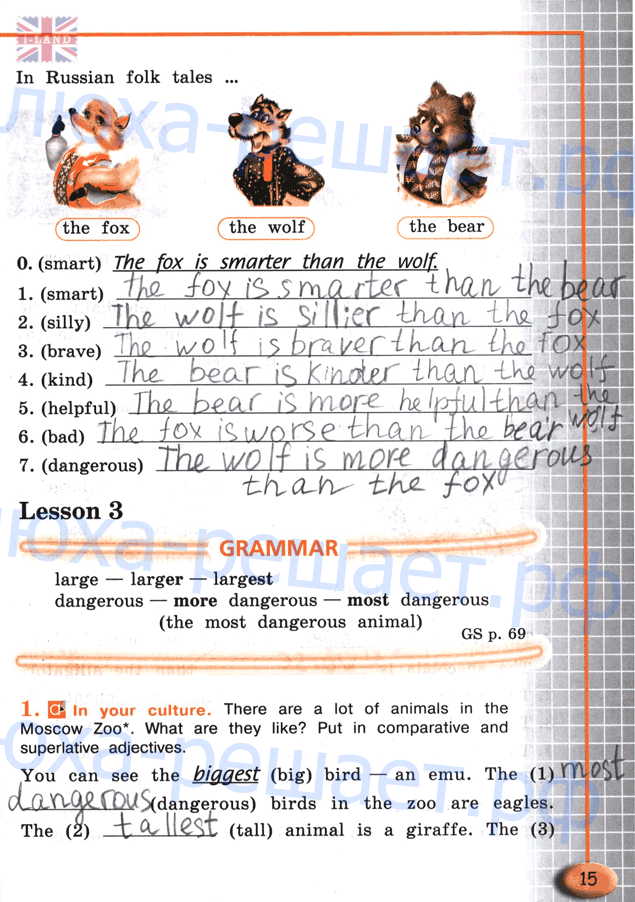 I-LAND
In Russian folk tales ...
the fox the wolf the bear
0. (smart) The fox is smarter than the wolf.
1. (smart) The fox is smarter than the bear
2. (silly) The wolf is sillier than the fox
3. (brave) The wolf is braver than the fox
4. (kind) The bear is kinder than the wolf
5. (helpful) The bear is more helpful than the
wolf
6. (bad) The fox is worse than the bear
7. (dangerous) The wolf is more dangerous
than the fox
Lesson 3
GRAMMAR
large — larger — largest
dangerous — more dangerous — most dangerous
(the most dangerous animal)
GS p. 69
1. In your culture. There are a lot of animals in the
Moscow Zoo*. What are they like? Put in comparative and
superlative adjectives.
You can see the biggest (big) bird — an emu. The (1) most
dangerous (dangerous) birds in the zoo are eagles.
The (2) tallest (tall) animal is a giraffe. The (3)
15
люха-решает.рф
люха-решает.рф
люха-решает.рф